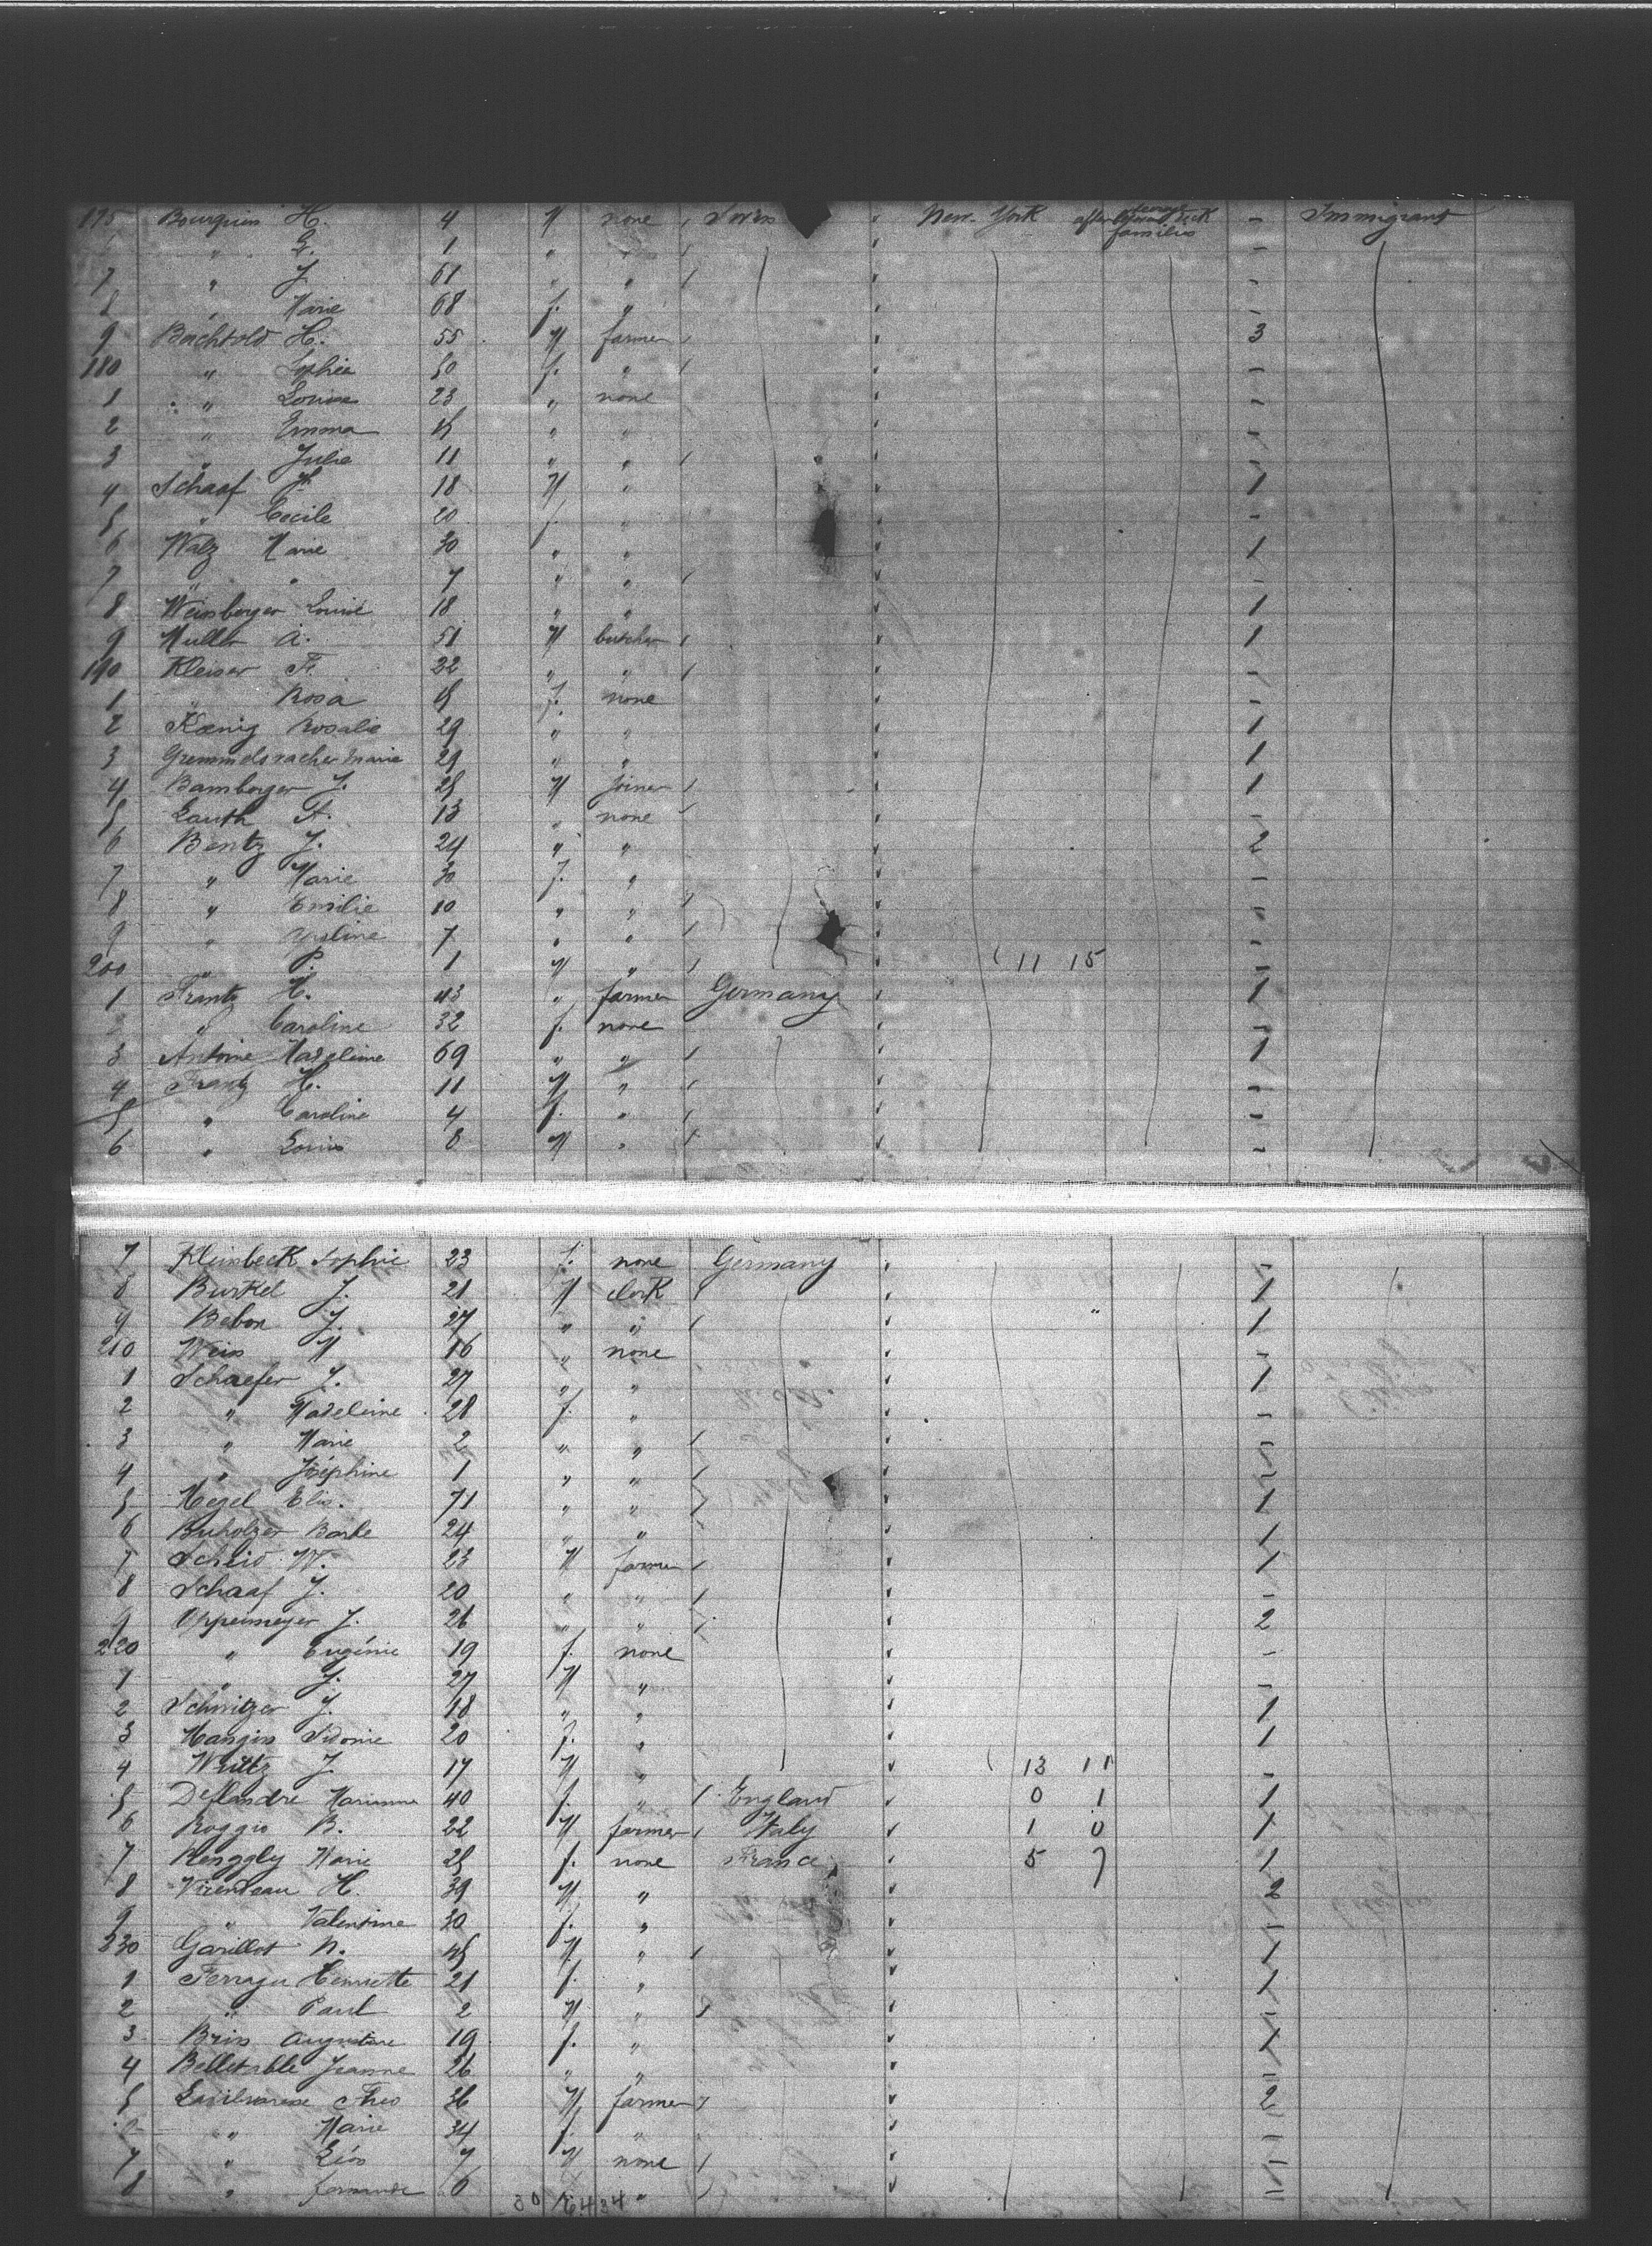 175 Bourquin H. 4 M none / Swiss New-York after families - Immigrant
" G. 1 " " / -
7 " J. 61 " " / -
8 " Marie 68 f. " -
9 Bachtold H. 55 M farmer / 3
180 " Sophie 50 f. " / -
1 " Louise 23 " none -
2 " Emma 15 " " -
3 " Julie 11 " " / -
4 Schaaf 18 M " 1
5 " Cecile 20 f. " -
6 Walz Marie 30 " " 1
7 " " 7 " " / -
8 Weinberger Louise 18 " " 1
9 Muller A. 51 M butcher / 1
190 Kleiser F. 22 " " / -
1 " Rosa 15 f. none -
2 Kœnig Rosalie 29 " " 1
3 Gremmelsracher Marie 29 " " 1
4 Bamberger J. 25 M joiner / 1
5 Lauth A. 13 " none / -
6 Bentz J. 24 " " 2
7 " Marie 30 f. " -
8 " Emilie 10 " " / -
9 " 7 " " / -
200 " P. 1 M " / 11 15 -
1 Frantz H. 43 " farmer Germany 1
" Caroline 32 f. none -
3 Antoine Madeleine 69 " " / 1
4 Frantz H. 11 M " / -
5 " Caroline 4 f. " / -
6 " Louis 8 M " / -
7 Kleinbeck Sophie 23 f. none Germany -
8 Burkel J. 21 M clerk / 1
9 Bebon J. 27 " " / " 1
210 Weis M 16 " none -
1 Schaefer J. 27 " " 1
2 " Madeleine 28 f. " -
3 " Marie 2 " " / -
4 " Joséphine 1 " " / -
5 Hezel Elis. 71 " " / 1
6 Buholzer Barbe 24 " " 1
7 Scheid W. 23 M farmer / 1
8 Schaaf J. 20 " " / -
9 Oppermeyer J. 26 " " / 2
220 " Eugénie 19 f. none -
1 " J. 27 M " -
2 Schnitzer J. 18 " " 1
3 Mangin Sidonie 20 f. " 1
4 Wultz J. 17 M " 13 11 -
5 Deflandre Marianne 40 f. " / England 0 1 1
6 Roggio B. 22 M farmer / Italy 1 0 1
7 Henggly Marie 25 f. none France 5 7 1
8 H. 39 M " 2
9 " Valentine 30 f. " -
230 Garillot N. 45 M " / 1
1 Ferragu Henriette 21 f. " 1
2 " Paul 2 M " / -
3 Brin Augustine 19 f. " 1
4 Belletable Jeanne 26 " " -
5 Theo 36 M farmer / 2
" Marie 34 f. " -
7 " Léon 7 M none / -
8 " Fernande 6 " / -
30 34